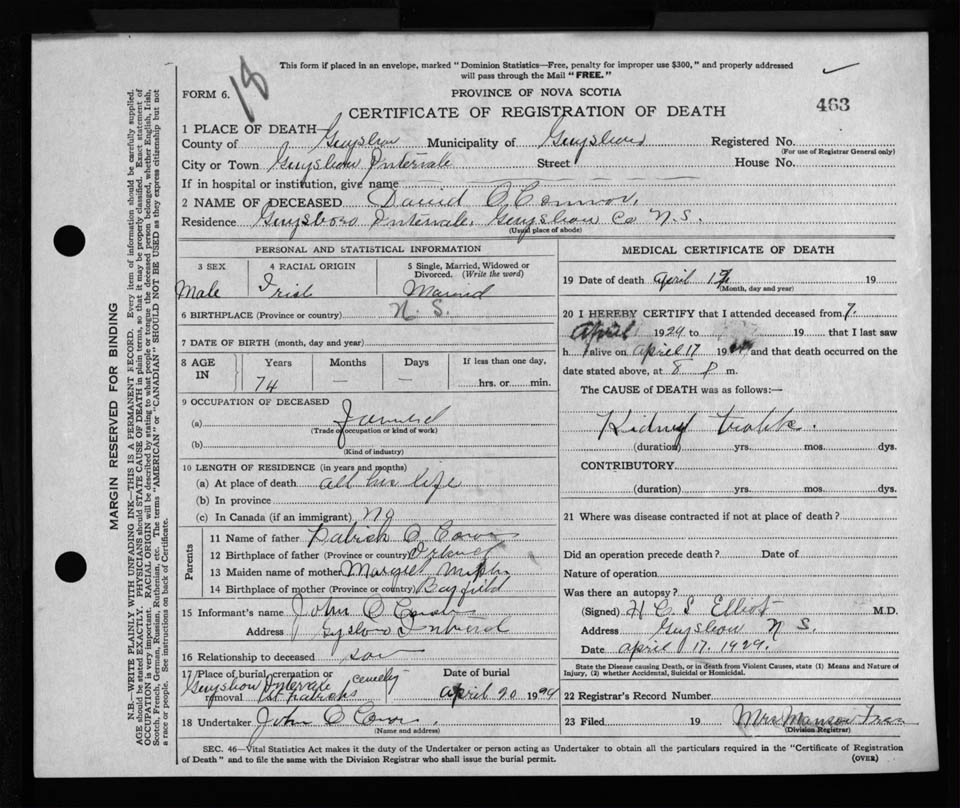 18
This form if placed in an envelope, marked “Dominion Statistics—Free, penalty for improper use $300,” and properly addressed
will pass through the Mail “FREE.”
FORM 6.
PROVINCE OF NOVA SCOTIA
CERTIFICATE OF REGISTRATION OF DEATH
463
1 PLACE OF DEATH—
County of Guysboro Municipality of Guysboro Registered No.
(For use of Registrar General only)
City or Town Guysboro Intervale Street House No.
If in hospital or institution, give name
2 NAME OF DECEASED David O Connor
Residence Guysboro Intervale, Guysboro Co N.S.
(Usual place of abode)
PERSONAL AND STATISTICAL INFORMATION
3 SEX 4 RACIAL ORIGIN 5 Single, Married, Widowed or Divorced. (Write the word)
Male Irish Married
6 BIRTHPLACE (Province or country) N. S.
7 DATE OF BIRTH (month, day and year)
8 AGE IN Years Months Days If less than one day,
74 — — hrs. or min.
9 OCCUPATION OF DECEASED
(a)
(Trade or occupation or kind of work)
(b)
(Kind of industry)
10 LENGTH OF RESIDENCE (in years and months)
(a) At place of death all his life
(b) In province
(c) In Canada (if an immigrant)
Parents
11 Name of father
12 Birthplace of father (Province or country) Ireland
13 Maiden name of mother
14 Birthplace of mother (Province or country) Bayfield
15 Informant's name John O
Address
16 Relationship to deceased son
17 Place of burial, cremation or removal Guysboro Intervale St Patricks cemetery
Date of burial
April 20 1929
18 Undertaker John O
(Name and address)
MEDICAL CERTIFICATE OF DEATH
19 Date of death April 17 19
(Month, day and year)
20 I HEREBY CERTIFY that I attended deceased from 7.
April 1929 to 19 that I last saw
h alive on April 17 19 and that death occurred on the
date stated above, at 8 P m.
The CAUSE of DEATH was as follows:—
Kidney trouble.
(duration) yrs. mos. dys.
CONTRIBUTORY
(duration) yrs. mos. dys.
21 Where was disease contracted if not at place of death?
Did an operation precede death? Date of
Nature of operation
Was there an autopsy?
(Signed) H C S Elliot M.D.
Address Guysboro N S.
Date April 17. 1929.
State the Disease causing Death, or in death from Violent Causes, state (1) Means and Nature of
Injury, (2) whether Accidental, Suicidal or Homicidal.
22 Registrar's Record Number
23 Filed 19 Mrs Manson
(Division Registrar)
SEC. 46—Vital Statistics Act makes it the duty of the Undertaker or person acting as Undertaker to obtain all the particulars required in the “Certificate of Registration
of Death” and to file the same with the Division Registrar who shall issue the burial permit.
(OVER)
MARGIN RESERVED FOR BINDING
N.B.—WRITE PLAINLY WITH UNFADING INK—THIS IS A PERMANENT RECORD. Every item of information should be carefully supplied.
AGE should be stated EXACTLY. PHYSICIANS should STATE CAUSE OF DEATH in plain terms, so that it may be properly classified. Exact statement of
OCCUPATION is very important. RACIAL ORIGIN will be described by stating to what people or tongue the deceased person belonged, whether English, Irish,
Scotch, French, German, Russian, Ruthenian, etc. The terms “AMERICAN” or “CANADIAN” SHOULD NOT BE USED as they express citizenship but not
a race or people. See instructions on back of Certificate.